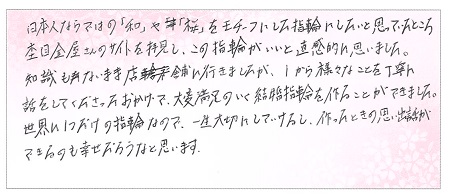 日本人ならではの「和」や「桜」をモチーフにした指輪にしたいと思っていたところ
杢目金屋さんのサイトを拝見し、この指輪がいいと直感的に思いました。
知識も有ないまま店舗に行きましたが、1から様々なことを丁寧に
話をしてくださったおかげで、大変満足のいく結婚指輪を作ることができました。
世界に1つだけの指輪なので、一生大切にしていけるし、作ったときの思い出話が
できるのも幸せだろうなと思います。